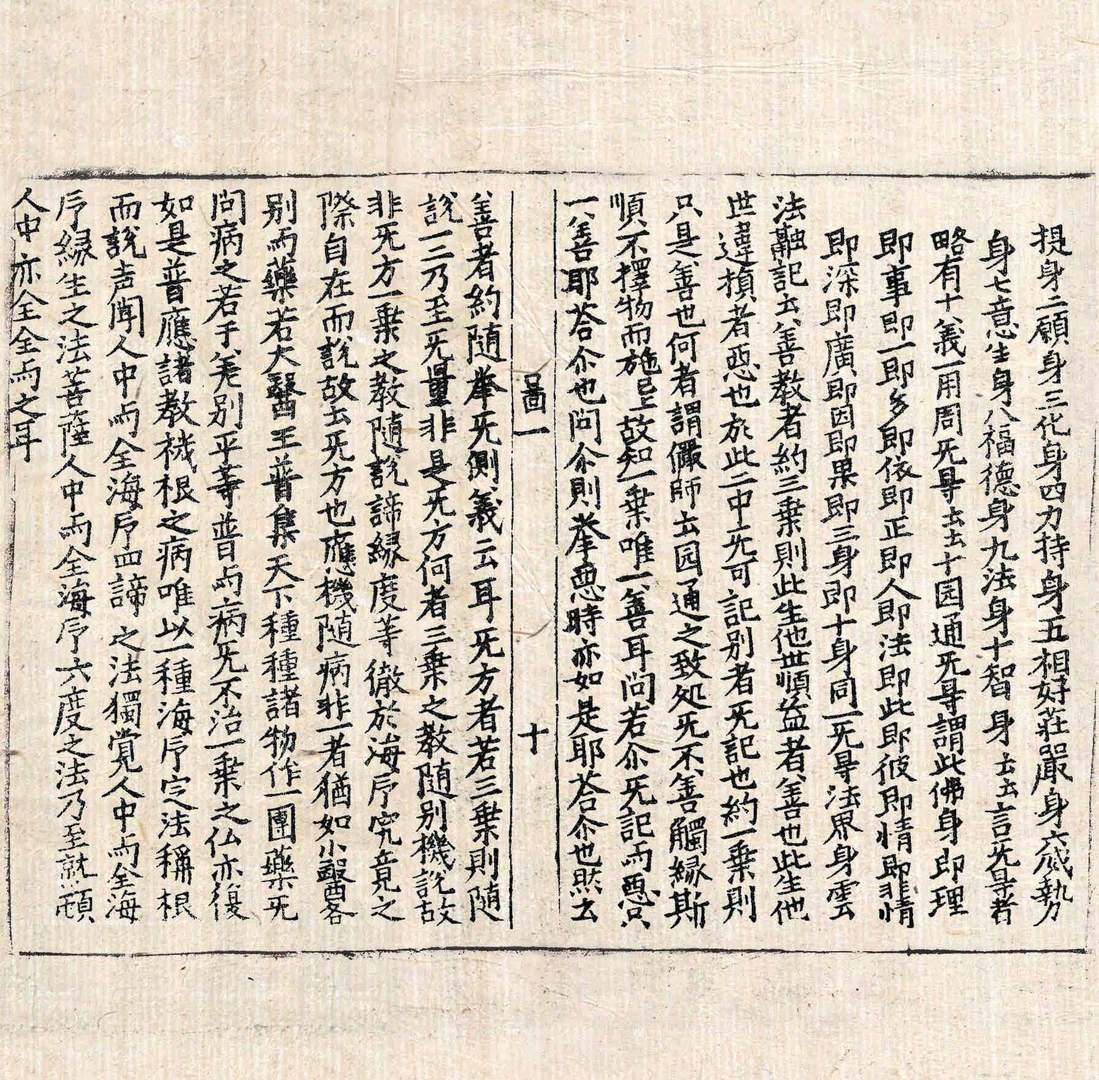 提身二願身三化身四力持身五相好莊嚴身六威勢
身七意生身八福德身九法身十智身云云言无㝵者
略有十義一用周无㝵云云十圎通无㝵謂此佛身即理
即事即一即多即依即正即人即法即此即彼即情即非情
即深即廣即因即果即三身即十身同一无㝵法界身雲
法融記云善教者約三乗則此生他世順益者善也此生他
世違損者惡也於此二中无可記別者无記也約一乗則
只是善也何者謂儼師云圎通之致処无不善觸緣斯
順不擇物而施已上故知一乗唯一善耳問若尒无記而惡只
一善耶荅尒也問尒則拳惡時亦如是耶荅尒也然云
圖一 十
善者約随拳无側義云耳无方者若三乗則随
說一三乃至无量非是无方何者三乗之教随別機說故
非无方一乗之教随說諦緣度等徹於海序究竟之
際自在而說故云无方也應機随病非一者猶如小醫各
別而藥若大醫王普集天下種種諸物作一團藥无
問病之若干差別平等普与病无不治一乗之仏亦復
如是普應諸教機根之病唯以一種海序定法稱根
而說声聞人中而全海序四諦之法獨覺人中而全海
序緣生之法菩薩人中而全海序六度之法乃至就頓
人中亦全全而之耳